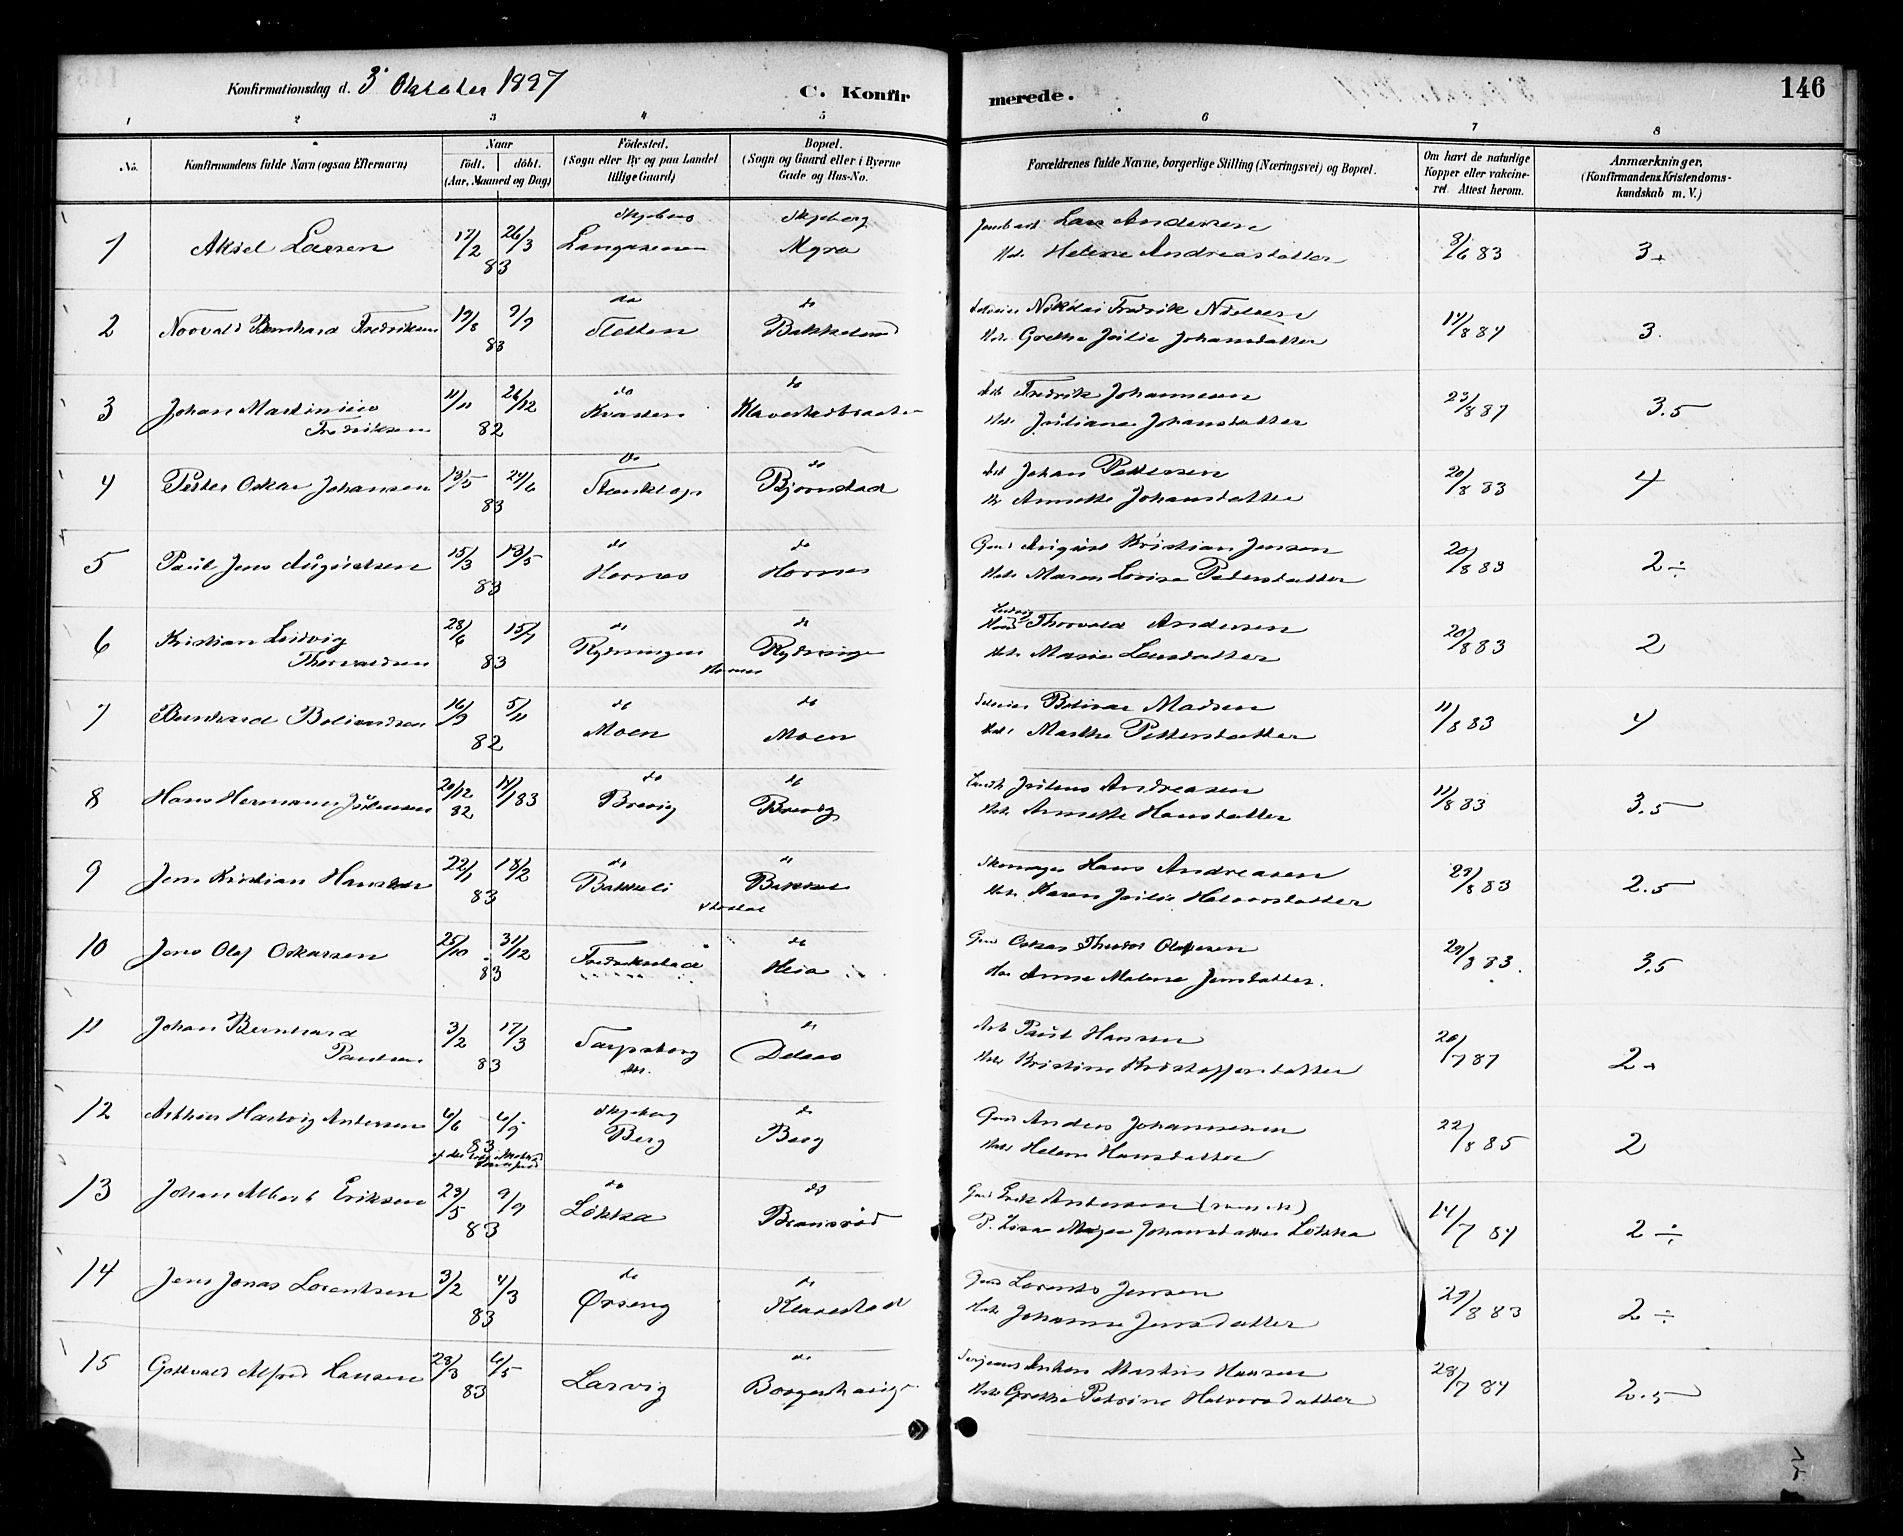 Konfirmationsdag d. 3. Oktober 1897
C. Konfir
merede.
146
1 2 3 4 5 6 7 8
No.
Konfirmandens fulde Navn (ogsaa Efternavn)
Naar
födt. döbt.
(Aar, Maaned og Dag)
Födested.
(Sogn eller By og paa Landet
tillige Gaard)
Bopæl.
(Sogn og Gaard eller i Byerne
Gade og Hus-No.
Forældrenes fulde Navne, borgerlige Stilling (Næringsvei) og Bopæl.
Om havt de naturlige
Kopper eller vakcine-
ret. Attest herom.
Anmærkninger.
(Konfirmandens Kristendoms-
kundskab m. V.)
1 Aksel Larsen 17/2 26/3 83 Skjeberg Langasenen Skjeberg Myra
Lars Andersen
Helene Andreasdatter 3/6 83 3+
2 Norvald Bernhard Fredriksen 19/8 9/9 83 do do
Nikolai Fredrik Nielsen
Hst. Grethe Julie Johansdatter 3
3 Johan Martinius
Fredriksen 11/11 26/12 82 do do
Arb Fredrik Johannesen
Hst. Juliane Johansdatter 3.5
4 Peter Oskar Johansen 13/5 24/6 83 do do Bjørnstad
Arb Johan Pettersen
Annette Johansdatter 20/8 83 4
5 Paul Jens Augustsen 15/3 13/5 83 do Hornes do Hornes
Gaardb August Kristian Jensen
Hst. Maren Lovise Pedersdatter 20/8 83 2÷
6 Kristian Ludvig
Thorvaldsen 28/6 15/7 83 do Rydningen do Rydninge
Hornes
Ludvig
Hans Thorvald Andersen
Hst. Marie Larsdatter 20/8 83 2
7 Bernhard 16/9 5/11 82 do Moen do Moen
Madsen
Hst. Marthe Pettersdatter 11/8 83 4
8 Hans Hermann Julensen 20/12 82 83 do Brevig do Brevig
Andreasen
Hst. Annette Hansdatter 11/8 83 3.5
9 Jens Kristian Hansen 22/1 18/2 83 do Bakkeli do
Skomager Hans Andreasen
Hst. Karen Julie Halvorsdatter 29/8 83 2.5
10 Jens Olaf Oskarsen 25/10 31/12 83 Fredrikstad do Heia
Oskar Theodor Olafsen
Anne Malene Jensdatter. 29/8 83. 3.5
11 Johan Bernhard
Paulsen 3/2 17/3 83 Sarpsborg do
Arb Paul Hansen
Hst. Kristine Kristoffersdatter 20/7 87 2+
12 Arthur Hartvig Andersen 4/6 83 Skjeberg Berg do Berg
Anders Johannesen
Hst. Helene Hansdatter 22/8 85 2
13 Johan Albert Eriksen 23/5 9/9 83 do Løkka do
Erik Andersen
Johansdatter Løkka 14/7 87 2÷
14 Jens Jonas Lorentsen 3/2 4/3 83 do Ørseng do Klavestad
Lorents Jensen
Hst. Johanne Jensdatter 29/8 83 2÷
15 Gottvald Alfred Hansen 28/3 6/5 83 Larvig do
Sergeant Anton Martin Hansen
Hst. Grethe Petrine Halvorsdatter 28/7 84 2.5